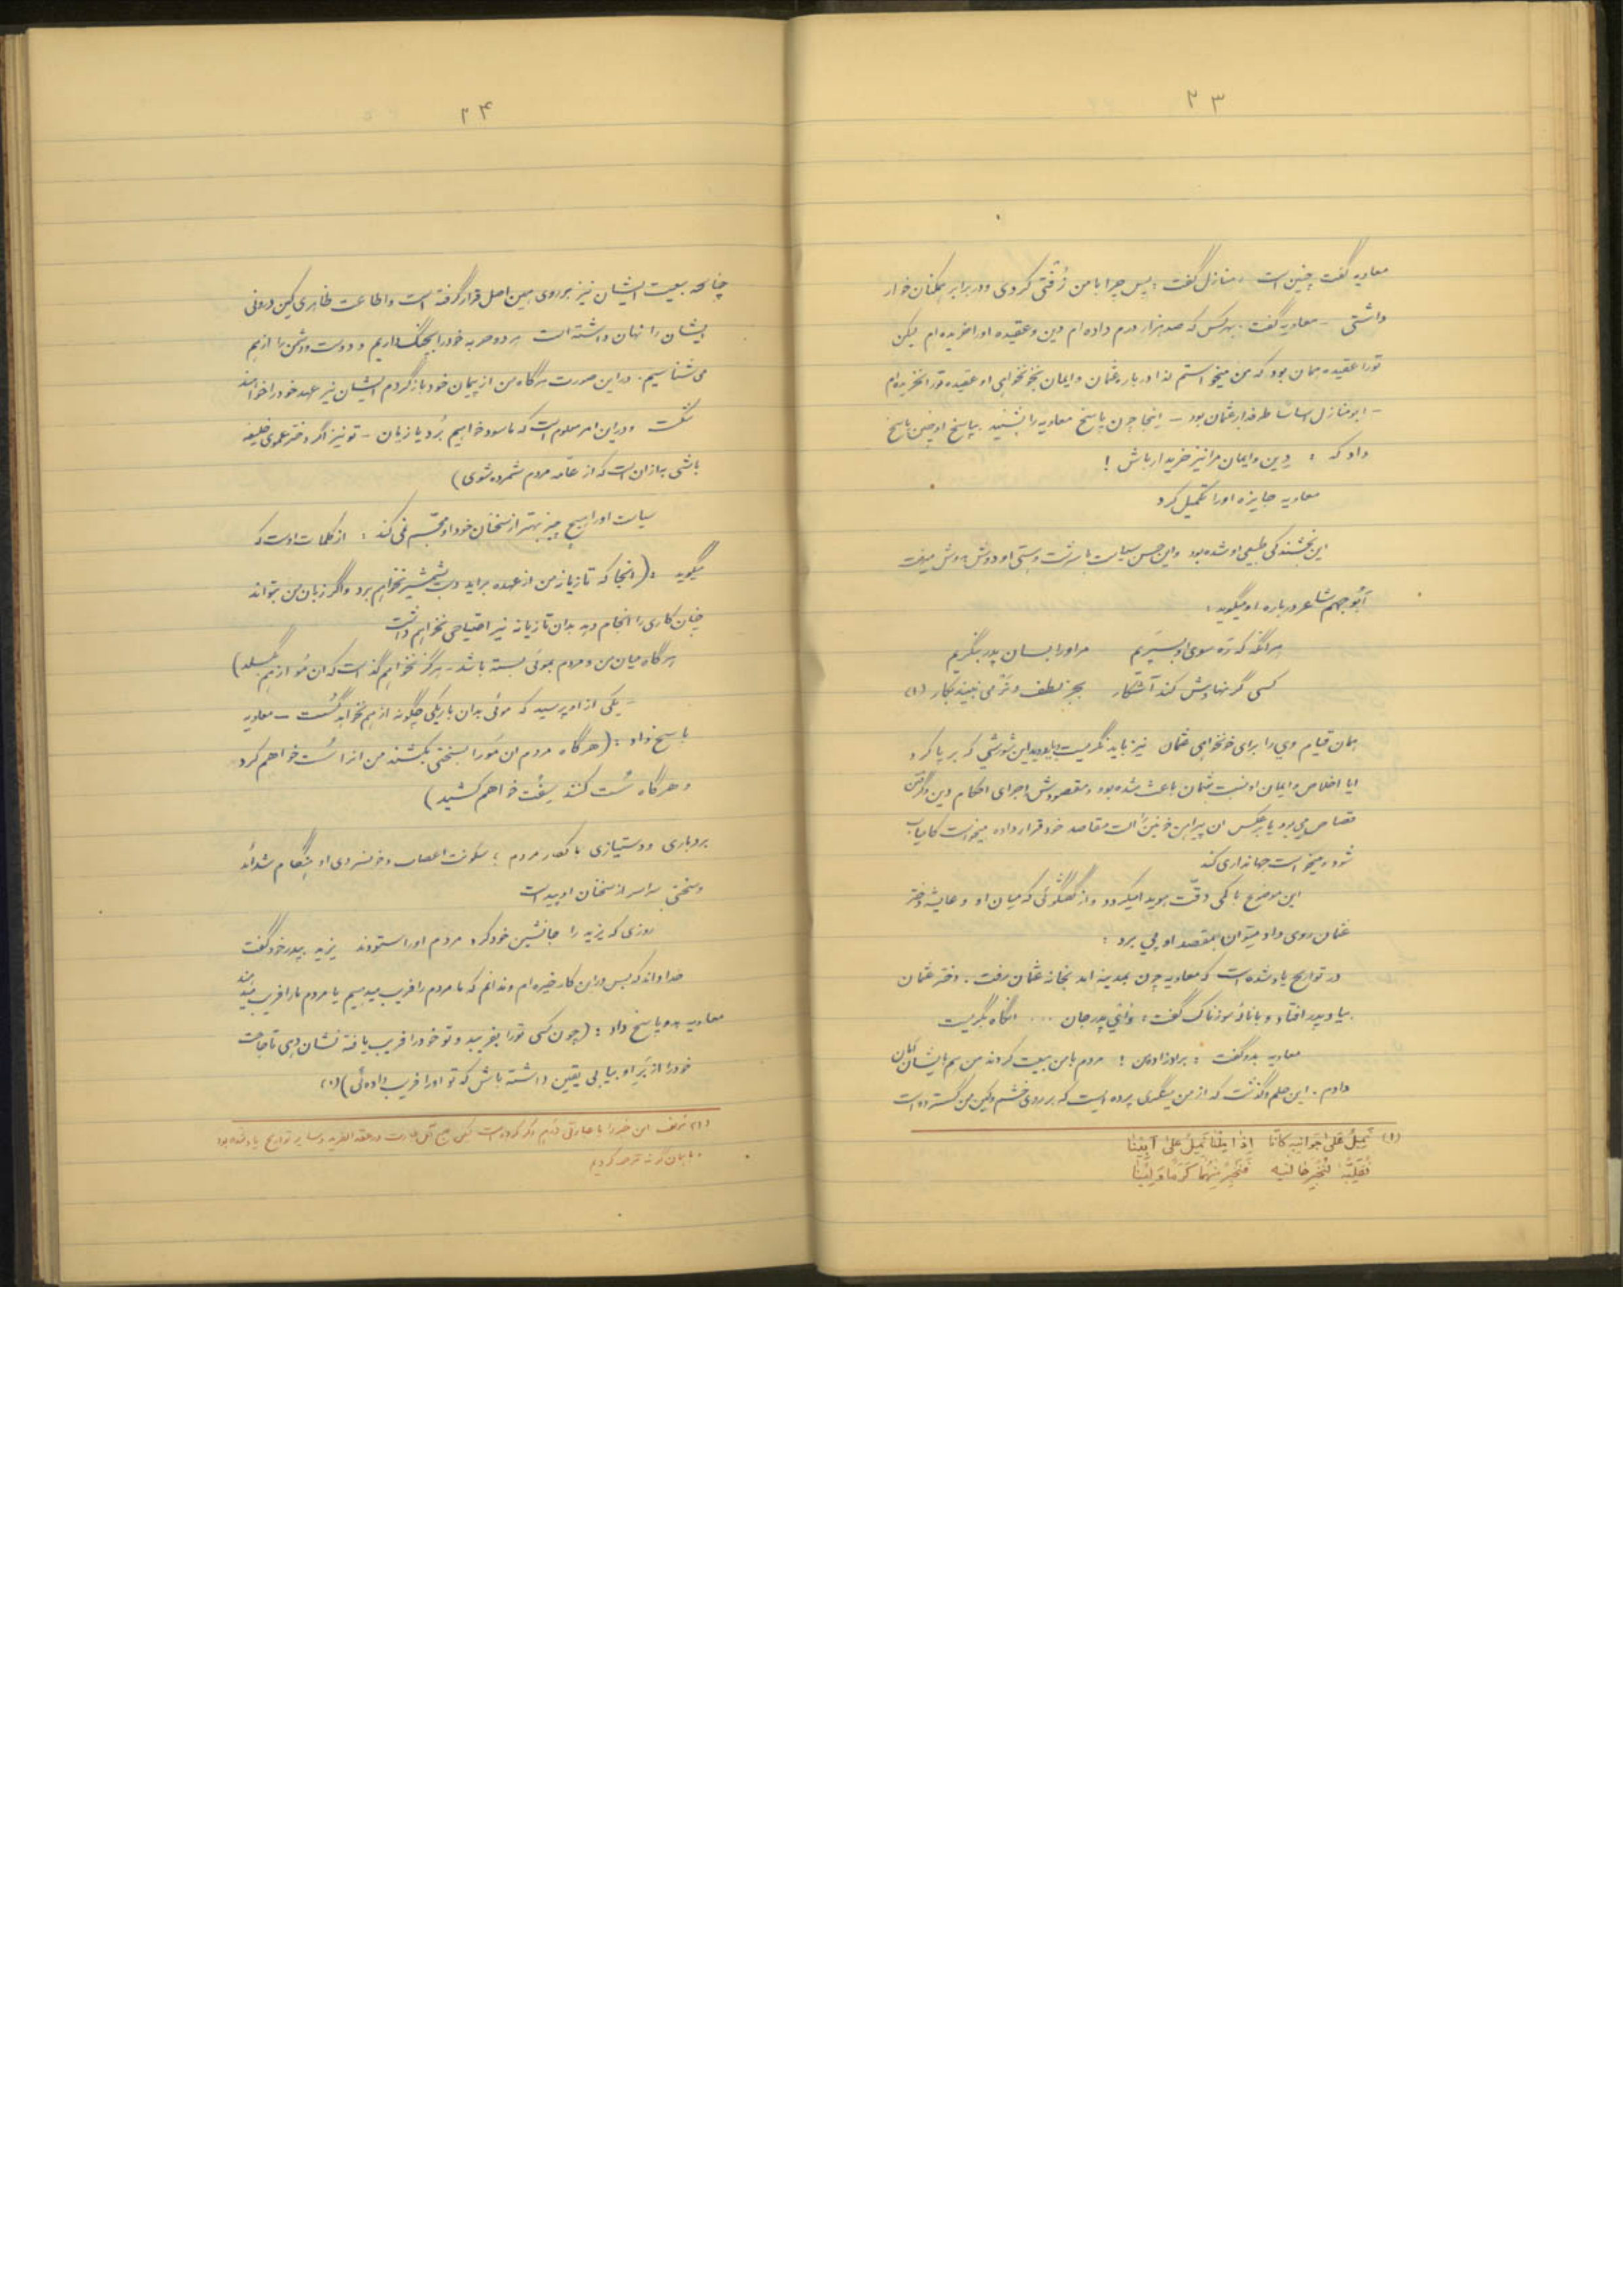 ۲۳
معاویه گفت چنین است، منازل گفت: پس چرا با من زُفتی کردی و در برابر همکنان خوار
داشتی - معاویه گفت. بهر کس که صد هزار درم داده ام دین و عقیده او را خریده ام لیکن
تو را عقیده همان بود که من میخواستم لذا درباره عثمان و ایمان بخونخواهی او عقیده تو را نخریده ام
- ابو منازل اساسا طرفدار عثمان بود - اینجا چون پاسخ معاویه را بشنید. بپاسخ او چنین پاسخ
داد که: دین و ایمان مرا نیز خریدار باش!
معاویه جایزه او را تکمیل کرد
این بخشندگی طبیعی او شده بود و این حس سیاست با سرشت و هستی او دوش بدوش میرفت
أبُو جهم شاعر درباره او میگوید:
هرآنگه که ره سوی او بسپَریم مر او را بسان پدر بنگریم
کسی گر نهادش کند آشکار بجز لطف و نرمی نبیند بکار (۱)
همان قیام وی را برای خونخواهی عثمان نیز باید نگریست و باید دید این شورشی که برپا کرد
ایا اخلاص و ایمان او نسبت بعثمان باعث شده بود و مقصودش اجرای احکام دین و گرفتن
قصاص می بود یا برعکس ان پیراهن خونین را الت مقاصد خود قرار داده میخواست کامیاب
شود و میخواست جهانداری کند
این موضوع با کمی دقّت هویدا میگردد و از گفتگوئی که میان او و عایشه دختر
عثمان روی داد میتوان بمقصد او پی برد:
در تواریخ یاد شده است که معاویه چون بمدینه امد بخانه عثمان رفت. دختر عثمان
بیاد پدر افتاد و با نالهٔ سوزناک گفت: وای پدر جان ... انگاه بگریست
معاویه بدو گفت: برادرزاده من! مردم با من بیعت کردند من هم بایشان امان
دادم. این حلم و گذشت که از من مینگری پرده ایست که بر روی خشم و کین من گسترده است
(۱) نَمِیلُ عَلیٰ جَوانِبِهِ کَأنّا إذا مِلْنا نَمِیلُ عَلیٰ أبِینا
نُقَلِّبُهُ لِنُخْبِرَ حالَتَیهِ فَنُخْبِرُ مِنْهُما کَرَماً وَلِینا
۲۴
چنانچه بیعت ایشان نیز بر روی همین اصل قرار گرفته است و اطاعت ظاهری کین درونی
ایشان را نهان داشته است هر دو حربه خود را بچنگ داریم و دوست و دشمن را از هم
می شناسیم. در این صورت هرگاه من از پیمان خود بازگردم ایشان نیز عهد خود را خواهند
شکست و در این امر معلوم است که ما سود خواهیم بُرد یا زیان - تو نیز اگر دختر عموی خلیفه
باشی به از ان است که از عامّه مردم شمرده شوی)
سیاست او را هیچ چیز بهتر از سخنان خود او مجسّم نمی کند: از کلمات اوست که
میگوید: (انجا که تازیانه من از عهده براید دست بشمشیر نخواهم برد و اگر زبان من بتواند
چنان کاری را انجام دهد بدان تازیانه نیز احتیاجی نخواهم داشت
هرگاه میان من و مردم بموئی بسته باشد - هرگز نخواهم گذاشت که ان مُو از هم بگسلد)
- یکی از او پرسید که موئی بدان باریکی چگونه از هم نخواهد گسست - معاویه
پاسخ داد: (هرگاه مردم ان مُو را بسختی بکشند من انرا سُست خواهم کرد
و هرگاه سُست کنند سِفت خواهم کشید)
بردباری و دوستیازی با کفار مردم؛ سکونت اعصاب و خونسردی او هنگام شدائد
و سختی سراسر از سخنان او پیداست
روزی که یزید را جانشین خود کرد مردم او را ستودند یزید بپدر خود گفت
خدا داند که بس در این کار خیره ام و ندانم که ما مردم را فریب میدهیم یا مردم ما را فریب میدهند
معاویه بدو پاسخ داد: (چون کسی تو را بفریبد و تو خود را فریب یافته نشان دهی تا حاجت
خود را از بَرِ او بیابی یقین داشته باش که تو او را فریب داده ئی) (۱)
(۱) مؤلف این خبر را با عبارتی دیگر ذکر کرده است لکن اصل عبارت در عقد الفرید و سایر تواریخ یاد شده بود
ما بهمان گونه ترجمه کردیم